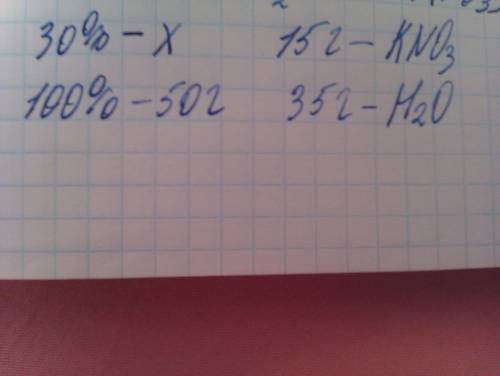 30% - x 15г - KNO₃
100% - 50г 35г - H₂O